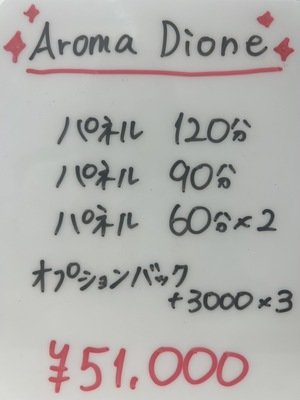 Aroma Dione
パネル 120分
パネル 90分
パネル 60分×2
オプションバック
+3000×3
¥51.000